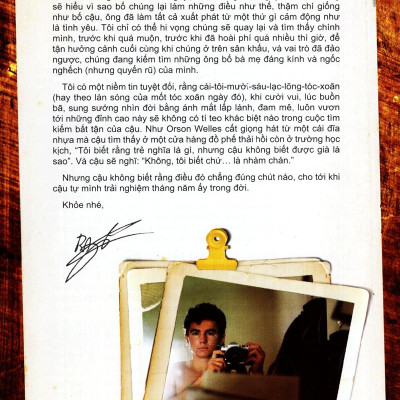 sẽ hiểu vì sao bố chúng lại làm những điều như thế, thậm chí giống
như bố cậu, ông đã làm tất cả xuất phát từ một thứ gì cảm động như
là tình yêu. Tôi chỉ có thể hi vọng chúng sẽ quay lại và tìm thấy chính
mình, trước khi quá muộn, trước khi đã hoài phí quá nhiều thì giờ, để
tận hưởng cảnh cuối cùng khi chúng ở trên sân khấu, và vai trò đã đảo
ngược, chúng đang kiếm tìm những ông bố bà mẹ đáng kính và ngốc
nghếch (nhưng quyến rũ) của mình.
Tôi có một niềm tin tuyệt đối, rằng cái-tôi-mười-sáu-lạc-lõng-tóc-xoăn
(hay theo làn sóng của mốt tóc xoăn ngày đó), khi cười vui, lúc buồn
bã, sung sướng nhìn đời bằng ánh mắt lấp lánh, đam mê, luôn vươn
tới những đỉnh cao này sẽ không có tí teo khác biệt nào trong cuộc tìm
kiếm bất tận của cậu. Như Orson Welles cất giọng hát từ một cái đĩa
nhựa mà cậu tìm thấy ở một cửa hàng đồ phế thải hồi còn ở trường học
kịch, “Tôi biết rằng trẻ nghĩa là gì, nhưng cậu không biết được già là
sao”. Và cậu sẽ nghĩ: “Không, tôi biết chứ… là nhàm chán.”
Nhưng cậu không biết rằng điều đó chẳng đúng chút nào, cho tới khi
cậu tự mình trải nghiệm tháng năm ấy trong đời.
Khỏe nhé,